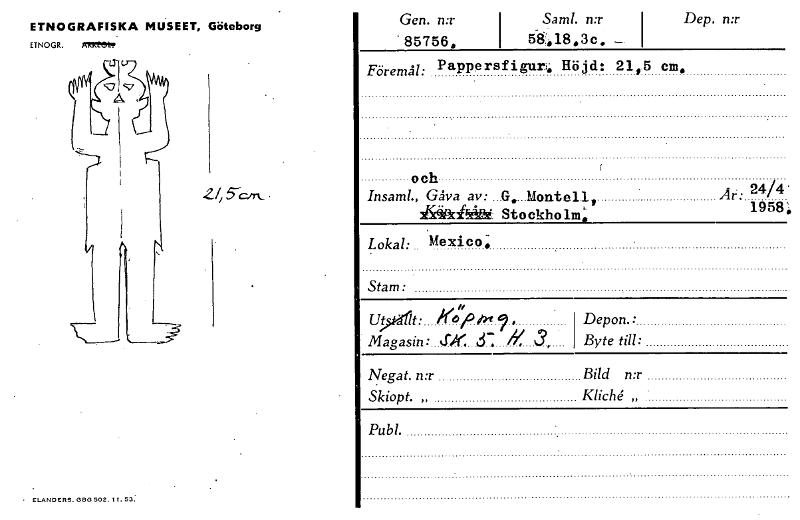 ETNOGRAFISKA MUSEET, Göteborg
ETNOGR. ARKEOL.
21,5 cm
ELANDERS. GBG 502. 11. 53.
Gen. n:r Saml. n:r Dep. n:r
85756. 58.18.3c.
Föremål: Pappersfigur. Höjd: 21,5 cm.
och
Insaml., Gåva av: G. Montell, År: 24/4
Köp från: Stockholm. 1958.
Lokal: Mexico.
Stam:
Utställt: Köpmg. Depon.:
Magasin: SK. 5. H. 3. Byte till:
Negat. n:r Bild n:r
Skiopt. „ Kliché „
Publ.